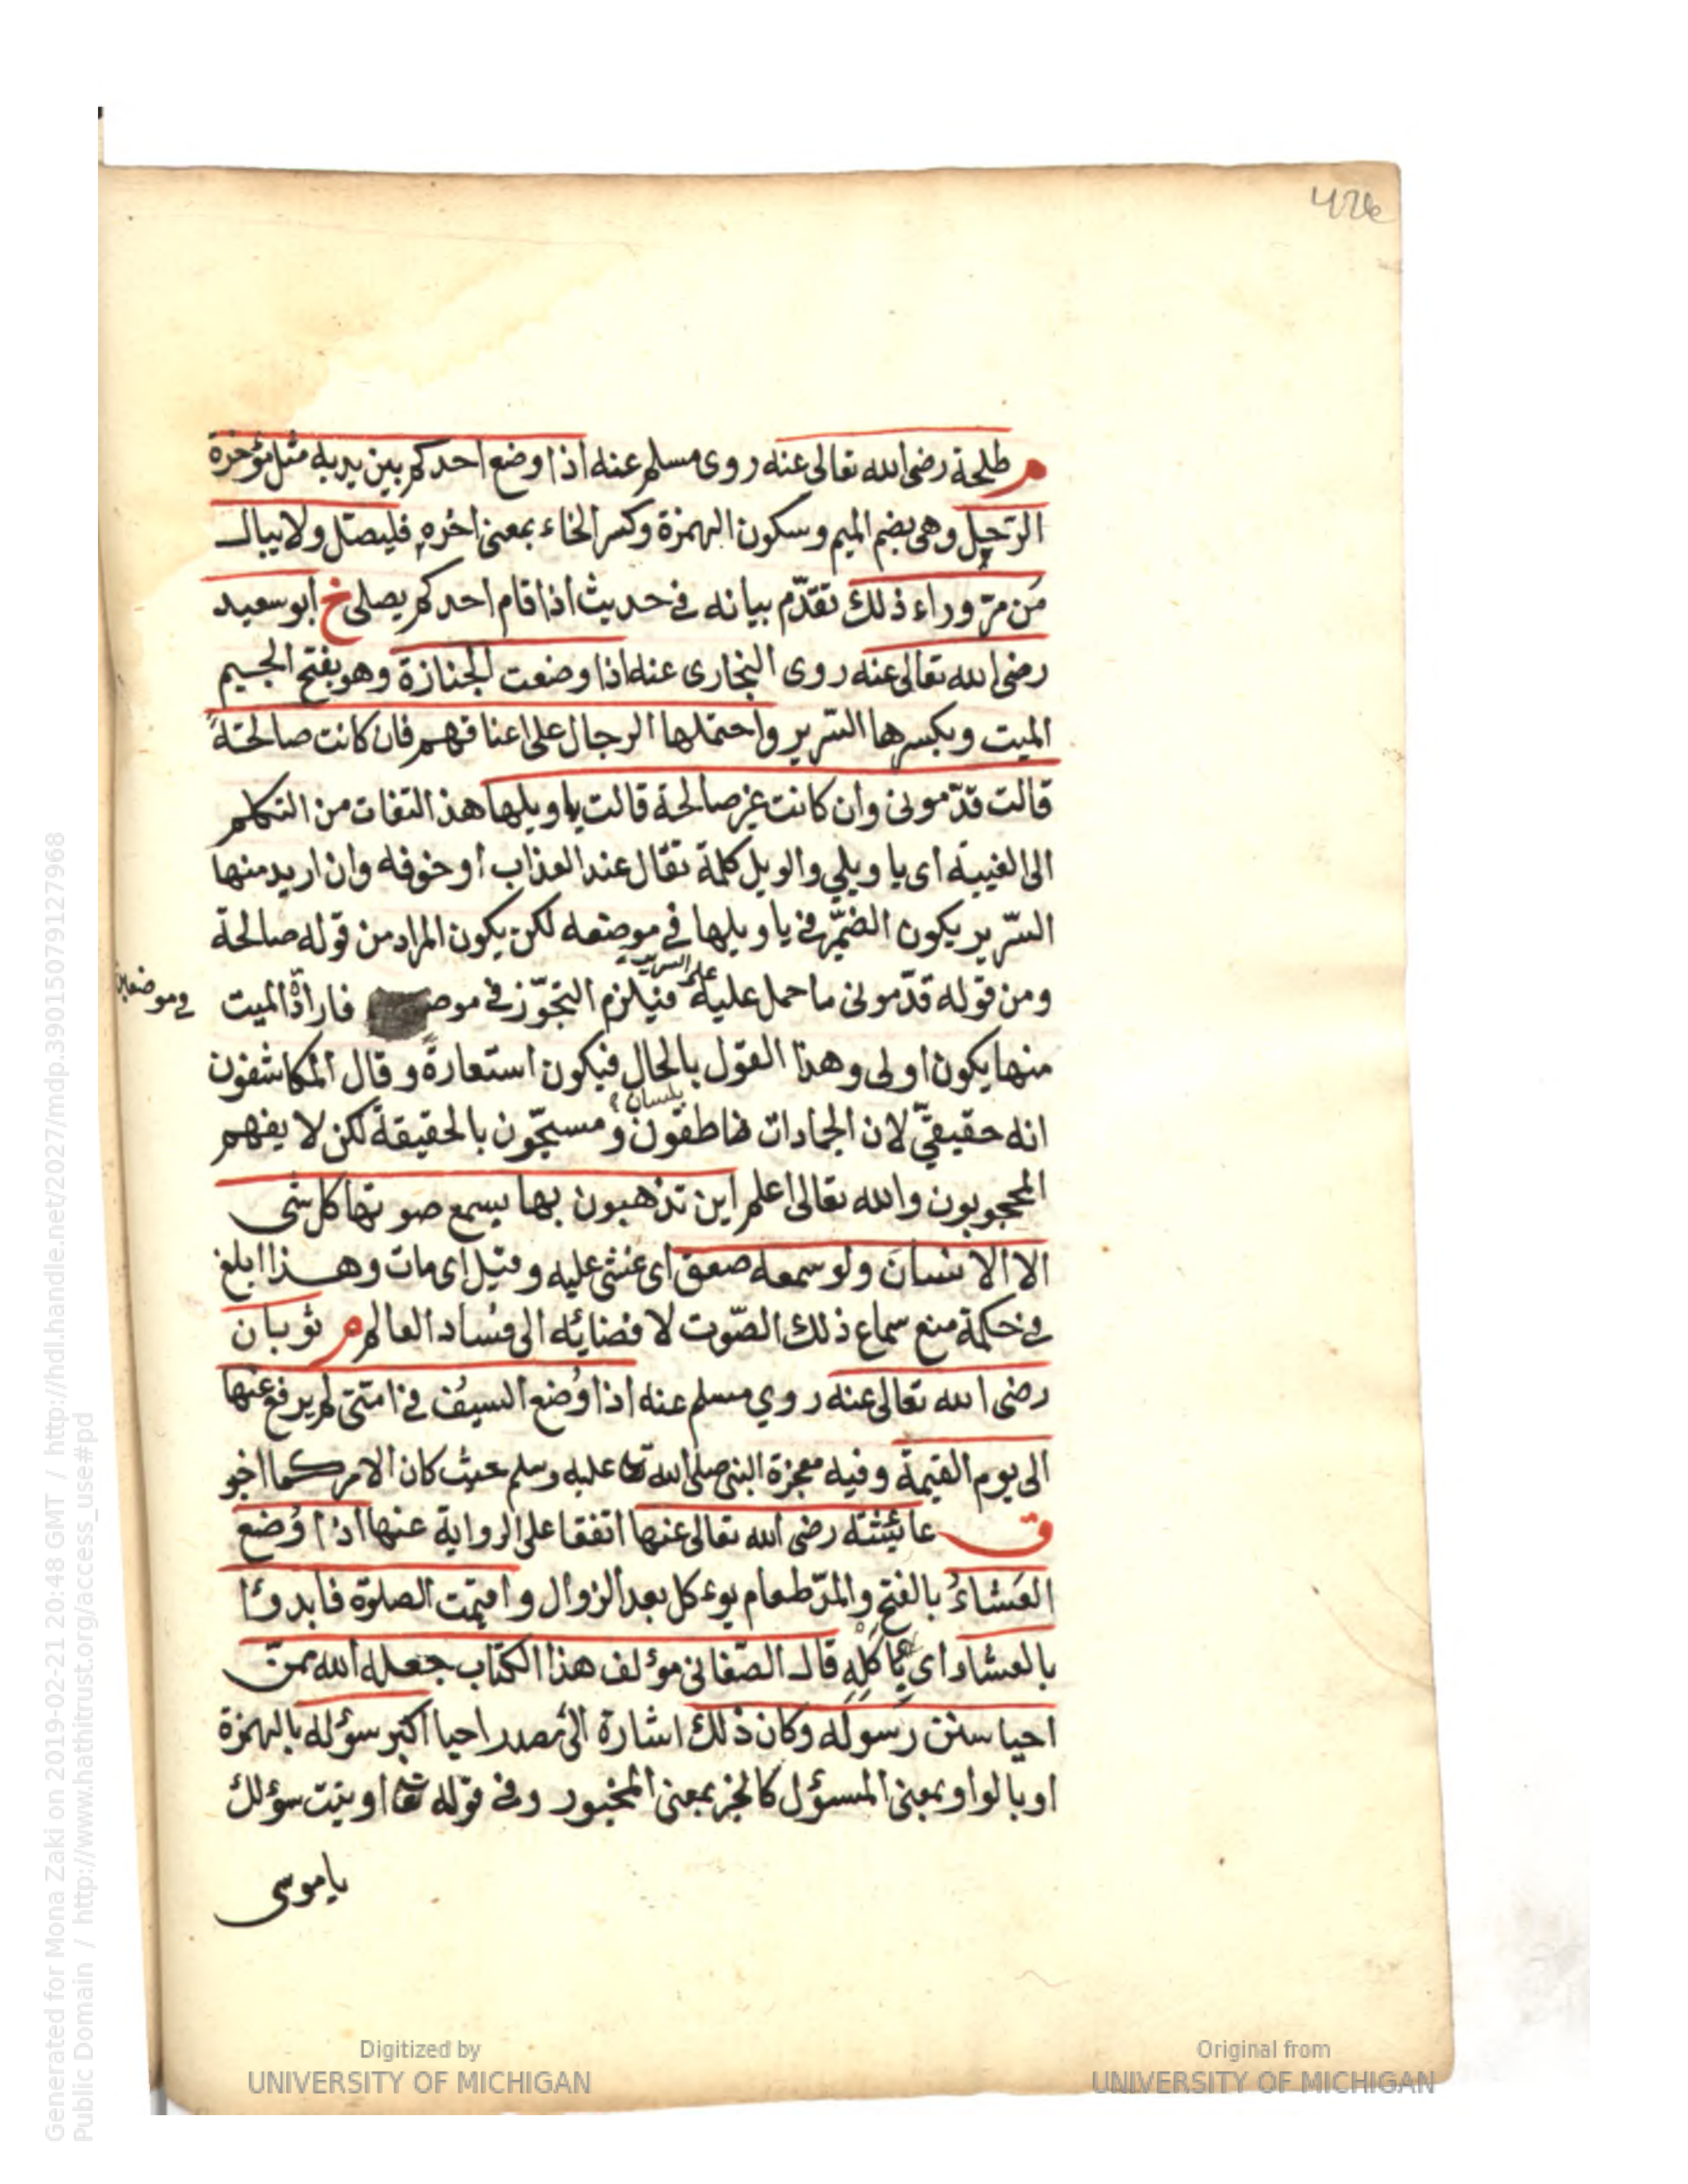 426
م طلحة رضى الله تعالى عنه روى مسلم عنه اذا وضع احدكم بين يديه مثل مؤخرة
الرّحل وهى بضم الميم وسكون الهمزة وكسر الخاء بمعنى اخره فليصلّ ولا يبال
مَن مرّ وراء ذلك تقدّم بيانه فى حديث اذا قام احدكم يصلى خ ابو سعيد
رضى الله تعالى عنه روى البخارى عنه اذا وضعت الجنازة وهو بفتح الجيم
الميت وبكسرها السّرير واحتملها الرجال على اعناقهم فان كانت صالحةً
قالت قدّمونى وان كانت غير صالحة قالت يا ويلها هذا التفات من التكلم
الى الغيبة اى يا ويلي والويل كلمة تقال عند العذاب او خوفه وان اريد منها
السّرير يكون الضمير فى يا ويلها فى موضعه لكن يكون المراد من قوله صالحة
ومن قوله قدّمونى ما حمل عليه على السرير فيلزم التجوّز فى موضع فارادة الميت
فى موضعين
منها يكون اولى وهذا القول بالحال فيكون استعارةً وقال المكاشفون
انه حقيقيّ لان الجمادات ناطقون بلسان ومسبّحون بالحقيقة لكن لا يفهم
المحجوبون والله تعالى اعلم اين تذهبون بها يسمع صوتها كل شى
الا الانسانَ ولو سمعه صعق اى غشى عليه وقيل اى مات وهذا ابلغ
فى حكمة منع سماع ذلك الصّوت لافضائه الى فساد العالم م ثوبان
رضى الله تعالى عنه روي مسلم عنه اذا وُضع السيفُ فى امّتى لم يرفع عنها
الى يوم القيمة وفيه معجزة النبى صلى الله تعا عليه وسلم حيث كان الامر كما اخبر
ق عائشة رضى الله تعالى عنها اتفقا على الرواية عنها اذا وُضع
العَشاءُ بالفتح والمدّ طعام يوءكل بعد الزوال واقيمت الصلوة فابدؤا
بالعشاء اى باكله قال الصّغانى مؤلف هذا الكتاب جعله الله ممن
احيا سنن رسوله وكان ذلك اشارة الى مصدر احيا اكبر سؤله بالهمزة
او بالواو بمعنى المسؤل كالخبز بمعنى المخبوز وفى قوله تعا اوتيت سؤلك
يا موسى
Generated for Mona Zaki on 2019-02-21 20:48 GMT / http://hdl.handle.net/2027/mdp.39015079127968
Public Domain / http://www.hathitrust.org/access_use#pd
Digitized by
UNIVERSITY OF MICHIGAN
Original from
UNIVERSITY OF MICHIGAN